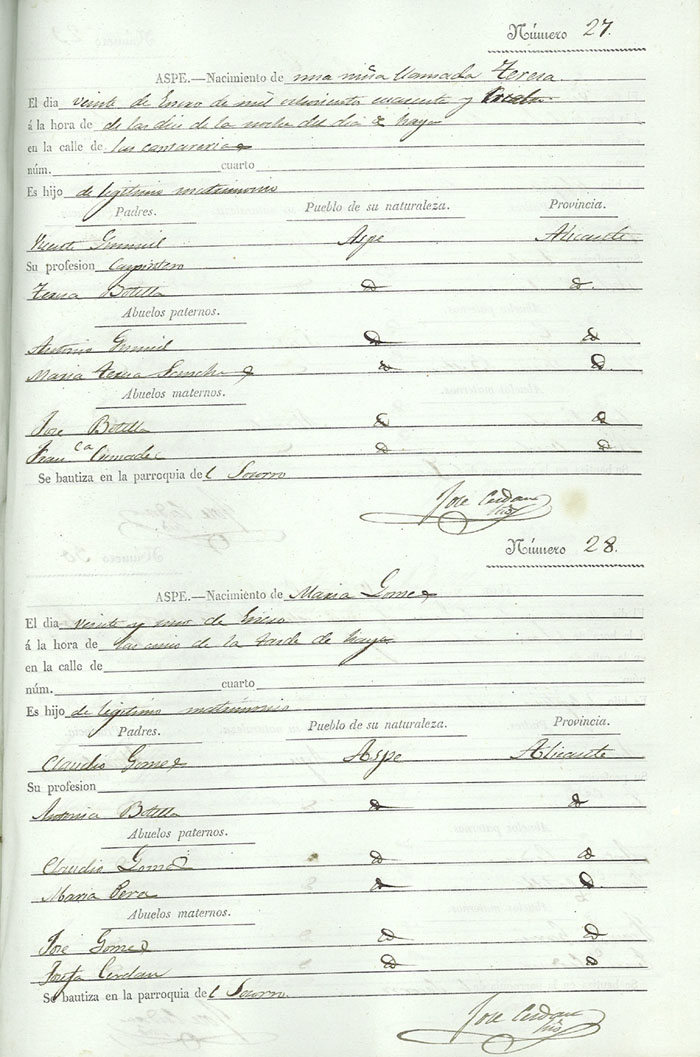 Número 27.
ASPE.—Nacimiento de una niña llamada Teresa.
El dia veinte de Enero de mil ochocientos cuarenta y
á la hora de de las diez de la noche del dia de
en la calle de las
núm. cuarto
Es hijo de legitimo matrimonio
Padres. Pueblo de su naturaleza. Provincia.
Vicente Aspe Alicante
Su profesion Carpintero
Teresa Botella d d.
Abuelos paternos.
Antonio d d
Maria Teresa Sanchez d d
Abuelos maternos.
Jose Botella d d
Fran.ca d d
Se bautiza en la parroquia del Socorro
Jose Cerdan
Número 28.
ASPE.—Nacimiento de Maria Gomez
El dia veinte y uno de Enero
á la hora de las cinco de la tarde de
en la calle de
núm. cuarto
Es hijo de legitimo matrimonio
Padres. Pueblo de su naturaleza. Provincia.
Claudio Gomez Aspe Alicante
Su profesion
Antonia Botella d d
Abuelos paternos.
Claudio Gomez d d
Maria d d
Abuelos maternos.
Jose Gomez d d
Josefa Cerdan d d
Se bautiza en la parroquia del Socorro.
Jose Cerdan